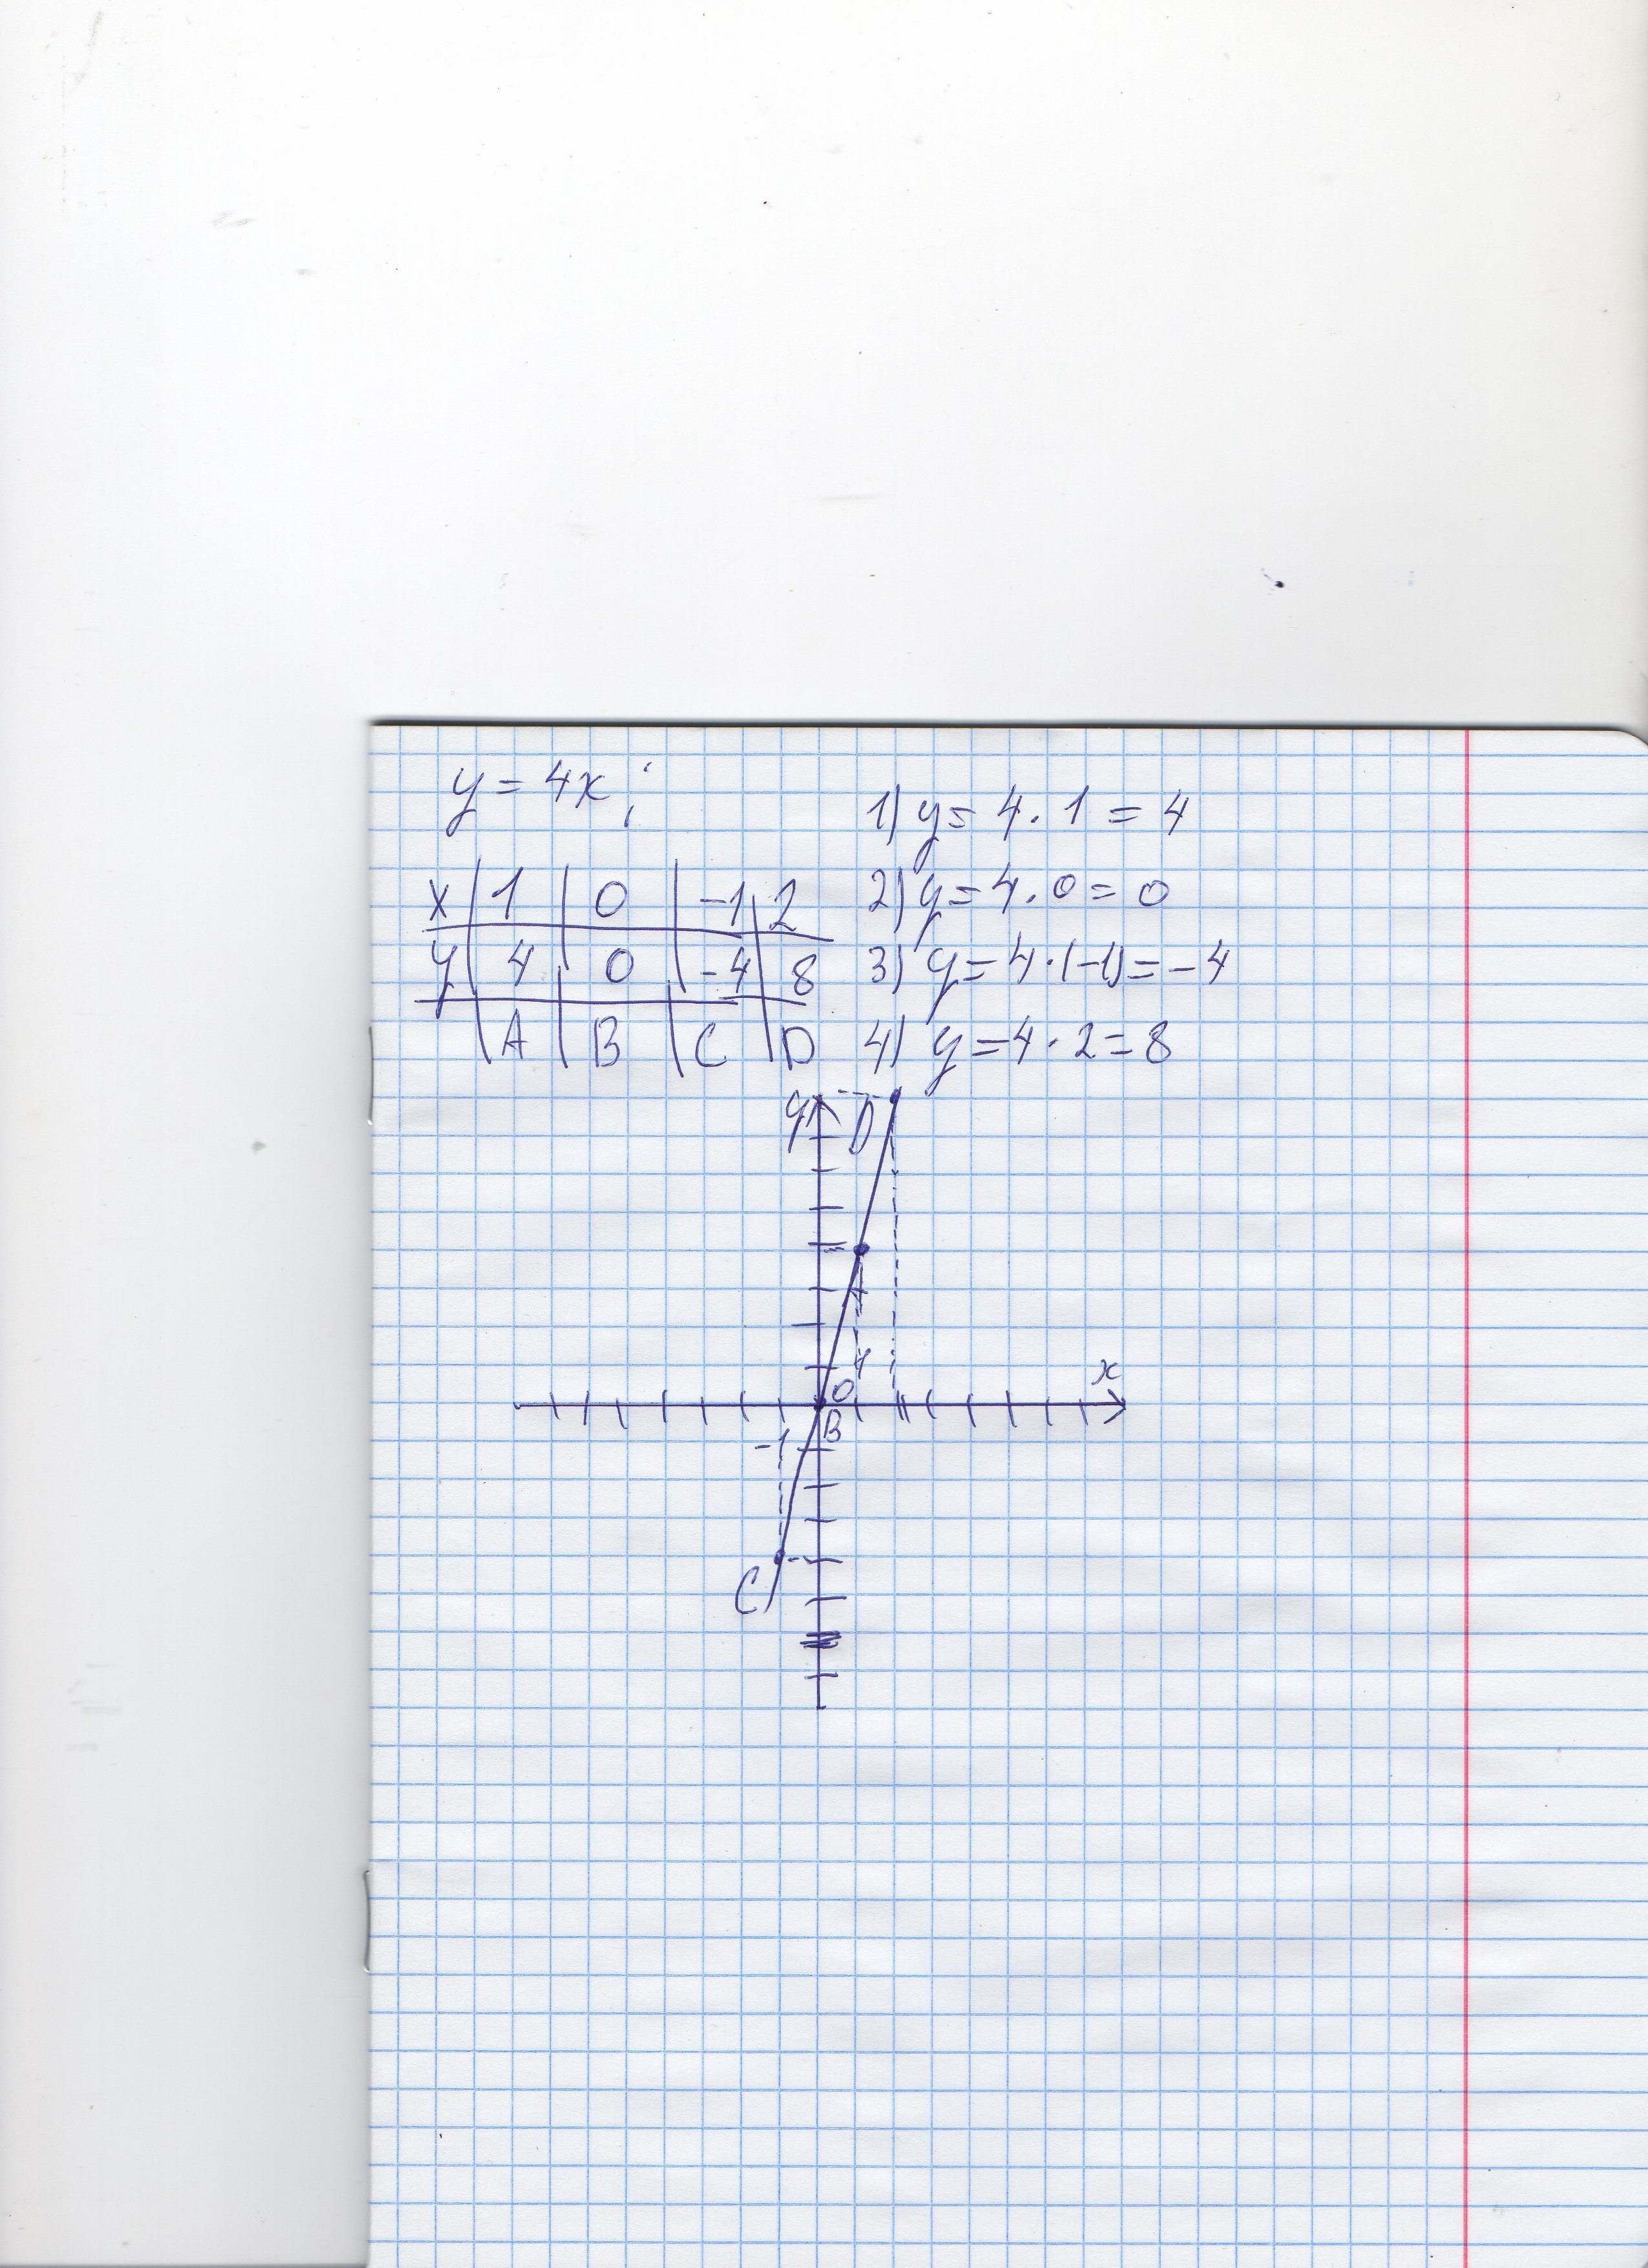 y = 4x;
x | 1 | 0 | -1 | 2
y | 4 | 0 | -4 | 8
A | B | C | D
1) y = 4 · 1 = 4
2) y = 4 · 0 = 0
3) y = 4 · (-1) = -4
4) y = 4 · 2 = 8
y D
A
x
0
B
-1
C